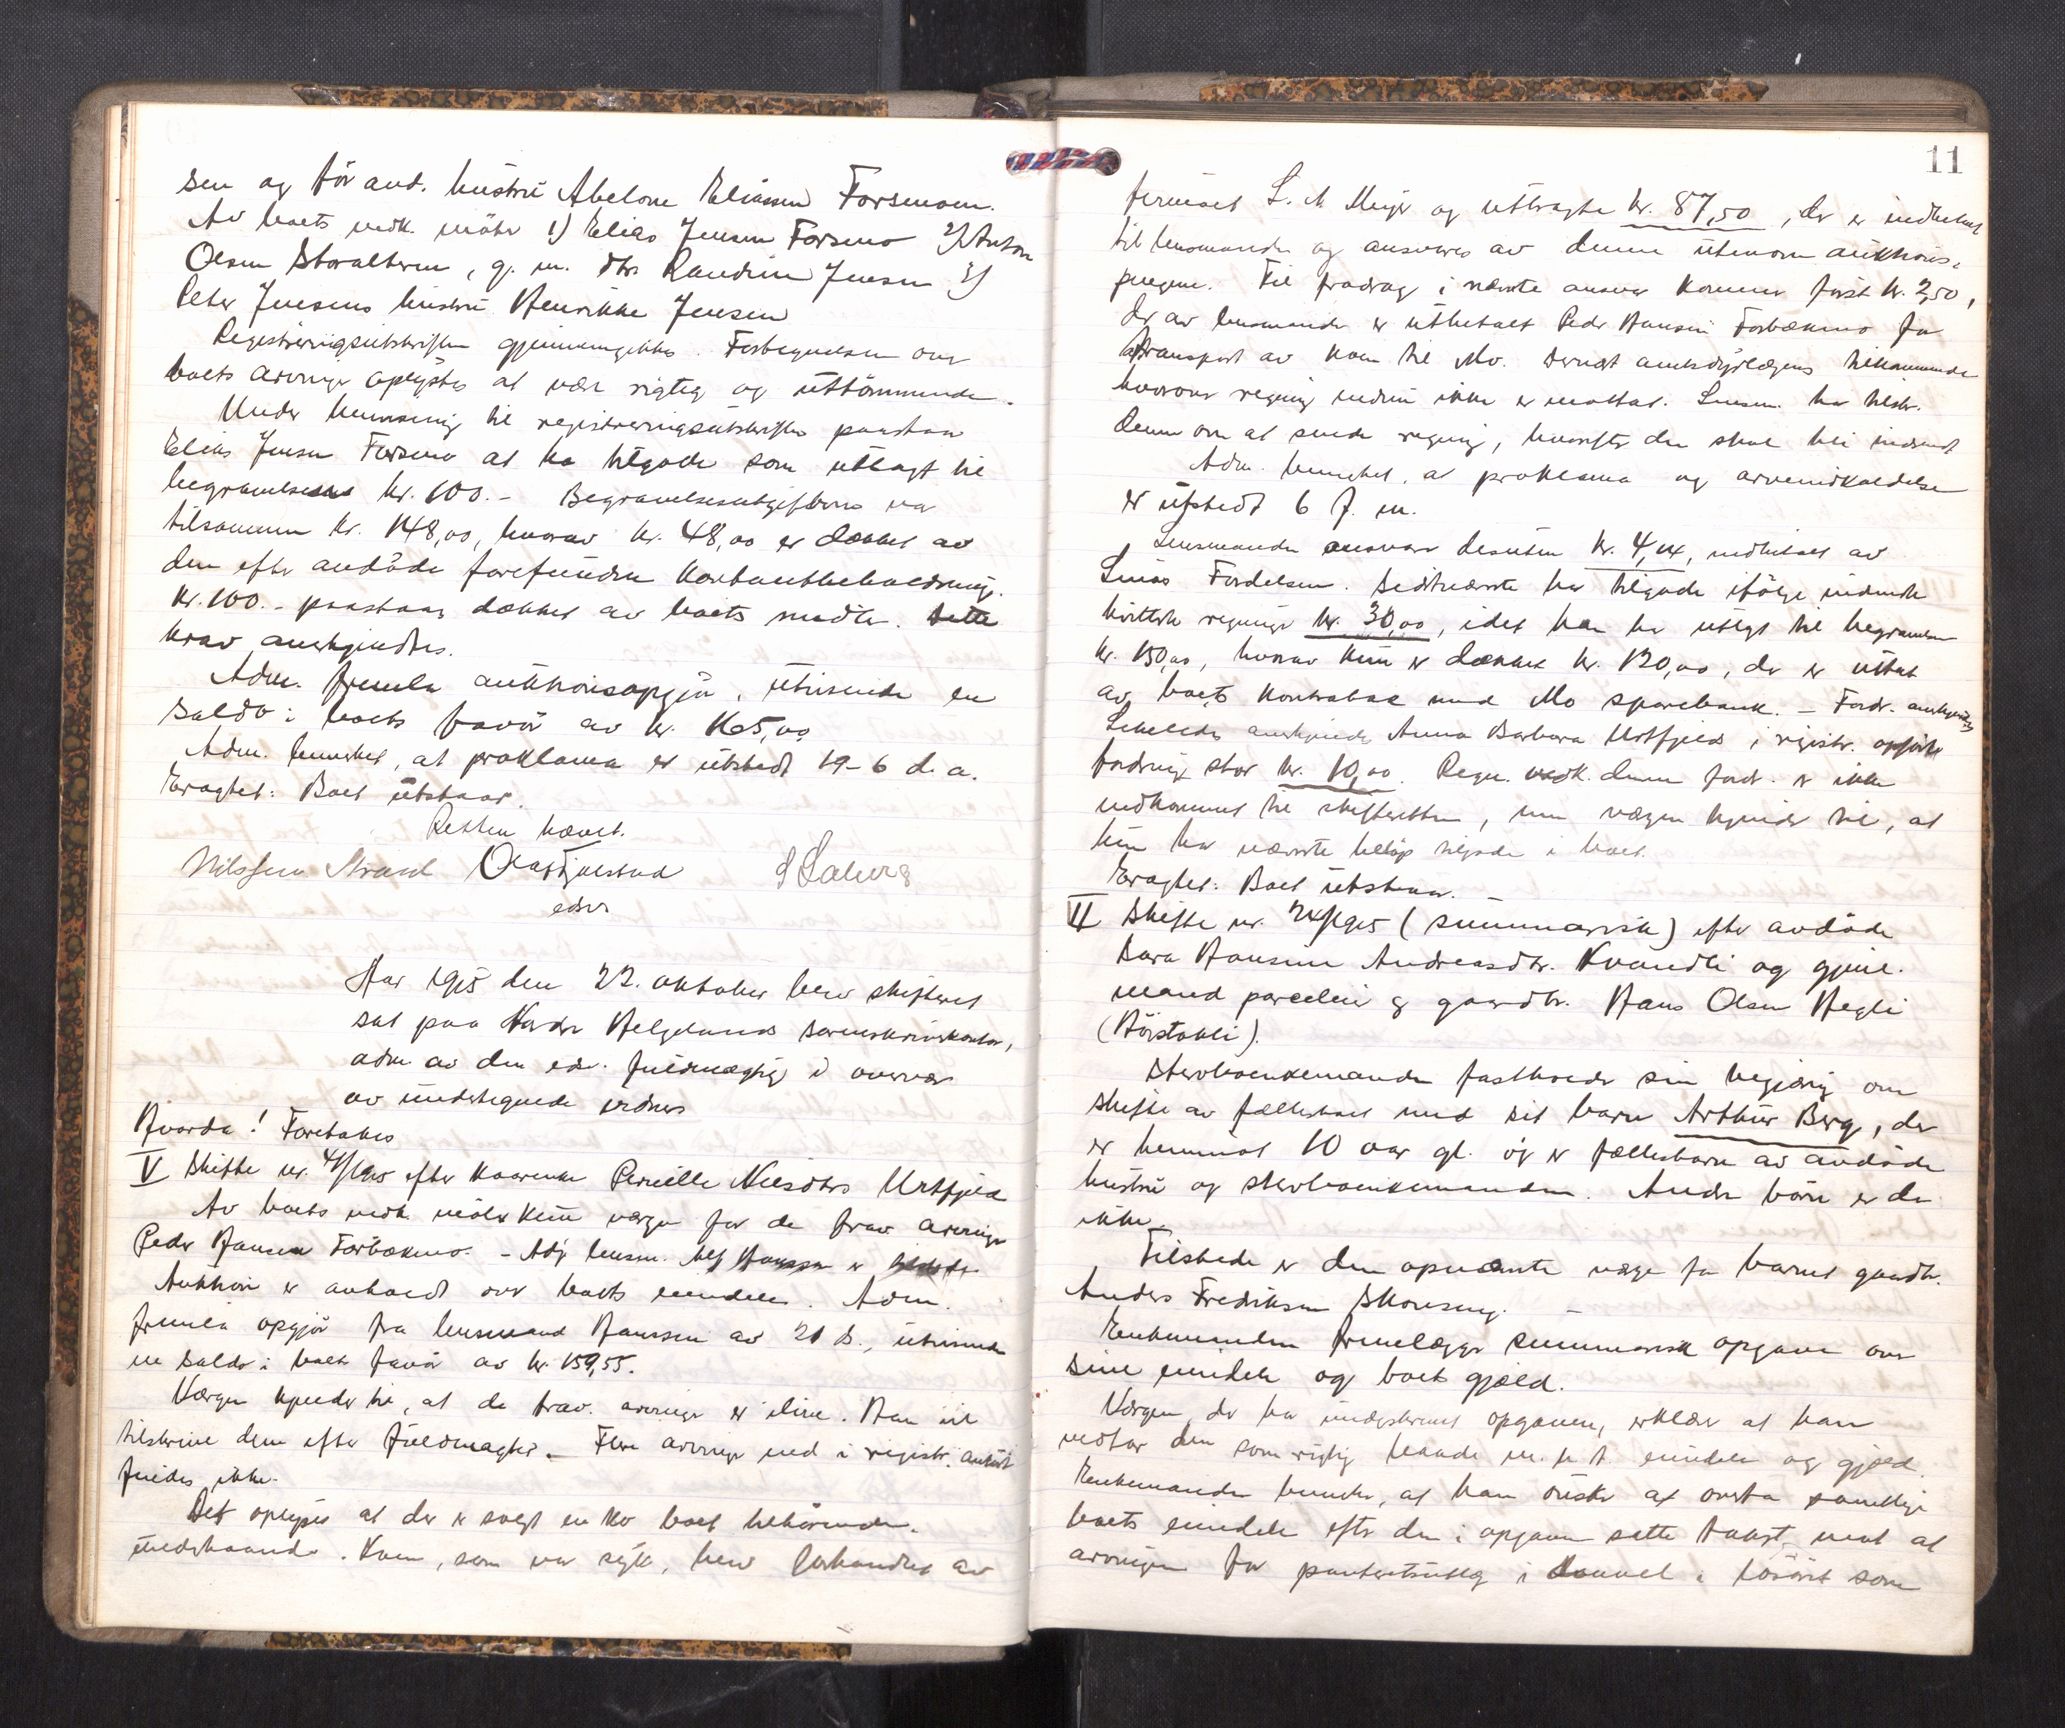 sen og för avd. hustru Abelone Eliassen Forsmoen.
Av boets vedk. möter 1) Elias Jensen Forsmo 2) Anton
Olsen Storalteren, g. m. dtr. Randine Jensen 3)
Peter Jensens hustru Henrikke Jensen
Registreringsutskriften gjennemgikkes. Forbegnelsen over
boets arvinger oplystes at være rigtig og uttömmende.
Under henvisning til registreringsutskriften paastaar
Elias Jensen Forsmo at ha tilgode som utlagt til
begravelsen kr. 100.- Begravelsesutgifterne var
tilsammen kr. 148,00, hvorav kr. 48,00 er dækket av
den efter avdöde forefundne kontantbeholdning.
Kr. 100.- paastaaes dækket av boets midler. Dette
krav anerkjendtes.
Adm. fremla auktionsopgjör, utvisende en
saldo i boets favör av kr. 165,00
Adm. bemerket, at proklama er utstedt 19-6 d. a.
Eragtet: Boet utstaar.
Retten hævet.
Nilssen Strand Olaf Fjelstad
edsv.
Aar 1915 den 22. oktober blev skifteret
sat paa Nordre Helgelands sorenskriverkontor,
adm av den edsv. fuldmægtig i overvær
av undertegnede vidner
Hvorda! Foretokes
V Skifte nr. 41/1915 efter Kaarenke Pernille Nilsdtrs Urtfjeld
Av boets vedk. möter kun verge for de frav. arvinger
Peder Hansen Forbækmo. - Adj lensm. Alf Hanssen er tilstede
Auktion er avholdt over boets eiendeler. Adm.
fremla opgjör fra lensmand Hanssen av 21 ds., utvisende
en saldo i boets favör av kr. 159,55.
Værgen kjender til, at de frav. arvinger er ilive. Han vil
tilskrive dem efter fuldmagter. - Flere arvinger end i registr. anfört
findes ikke.
Det oplyses at der er solgt en ko boet tilhörende
underhaanden. Koen, som var syk, blev forhandlet av
11
firmaet L. A Meyer og utbragte kr. 87,50, der er indbetalt
til lensmanden og ansvares av denne utenom auktions-
pengene. Til fradrag i nævnte ansvar kommer först kr. 2,50,
der av lensmanden er utbetalt Peder Hansen Forbækmo for
transport av koen til Mo. Dernæst amtsdyrlægens tilkommende
hvorover regning endnu ikke er mottat. Lensm. har tilskr.
denne om at sende regning, hvorefter den skal bli indsendt
Adm. bemerket, at proklama og arveindkaldelse
er utstedt 6 f. m.
Lensmanden ansvarer desuten kr. 4,14, indbetalt av
Linas Fordelsen. Sidstnævnte har tilgode ifölge indsendte
kvitterte regninger kr. 30,00, idet han har utlagt til begravelsen
kr. 150,00, hvorav kun er dækket kr. 120,00, der er uttat
av boets kontrabok med Mo sparebank. - Fordr. anerkjendtes
Likeledes anerkjendes Anna Barbara Urtfjelds i registr. opförte
fordring stor kr. 10,00. Regn. vedk. denne fordr. er ikke
indkommet til skifteretten, men værgen kjender til, at
hun har nævnte belöp tilgode i boet.
Eragtet: Boet utstaar.
VI Skifte nr. 24/1915 (summarisk) efter avdöde
Sara Hansine Andreasdtr. Kvandli og gjenl.
mand parcelleier og gaardbr. Hans Olsen Hegli
(Höistakli).
Sterboenkemanden fastholder sin begjæring om
skifte av fællesboet med sit barn Arthur Berg, der
er hemmot 10 aar gl. og er fællesbarn av avdöde
hustru og sterboenkemanden. Andre börn er der
ikke.
Tilstede er den opnævnte værge for barnet gaardbr.
Anders Fredriksen Skonseng. -
Enkemanden fremlægger summarisk opgave over
sine eiendele og boets gjæld.
Værgen, der har underskrevet opgaven, erklærer at han
vedtar den som rigtig baade m. h. t. eiendele og gjæld.
Enkemanden bemerker, at han önsker at overta samtlige
boets eiendele efter den i opgaven satte takst, mot at
arvingen faar panteutlæg i lösöret som